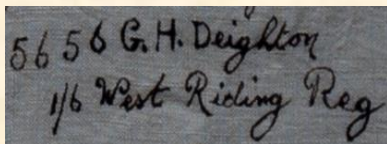 5656 G. H. Deighton
1/6 West Riding Reg